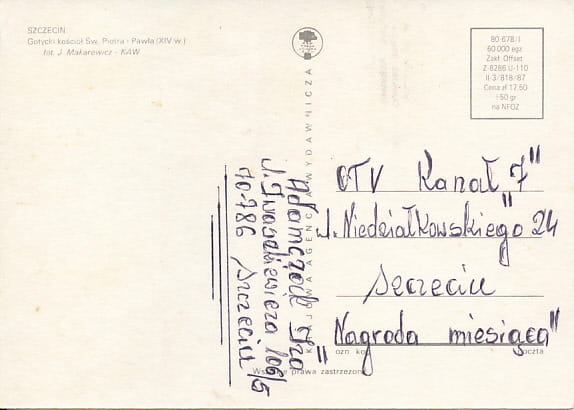 SZCZECIN
Gotycki kościół Św. Piotra i Pawła (XIV w.)
fot. J. Makarewicz - KAW
80-678/I
60.000 egz.
Zakł. Offset.
Z-8286 U-110
II-3/818/87
Cena zł 17,50
+50 gr
na NFOZ
KRAJOWA AGENCJA WYDAWNICZA
OTV Kanał „7"
ul. Niedziałkowskiego 24
Szczecin
"Nagroda miesiąca"
Wszelkie prawa zastrzeżone
poczta
Adamczack
ul. Iwaszkiewicza 106/5
70-786 Szczecin